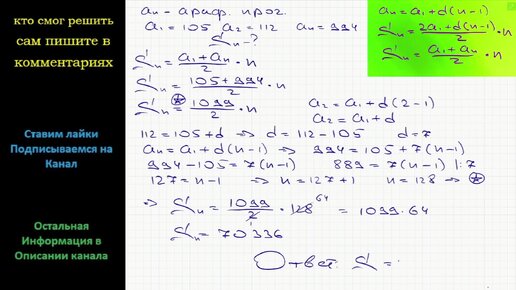 кто смог решить
сам пишите в
комментариях
Ставим лайки
Подписываемся на
Канал
Остальная
Информация в
Описании канала
an - ариф. прог.
a1 = 105 a2 = 112 an = 994
Sn - ?
Sn = (a1 + an)/2 · n
Sn = (105 + 994)/2 · n
Sn = 1099/2 · n
a2 = a1 + d(2-1)
a2 = a1 + d
112 = 105 + d => d = 112 - 105 d = 7
an = a1 + d(n-1) => 994 = 105 + 7(n-1)
994 - 105 = 7(n-1) 889 = 7(n-1) |:7
127 = n-1 => n = 127 + 1 n = 128 => *
=> Sn = 1099/2 · 128 64 = 1099 · 64
1
Sn = 70'336
Ответ: S =
an = a1 + d(n-1)
Sn = (2a1 + d(n-1))/2 · n
Sn = (a1 + an)/2 · n